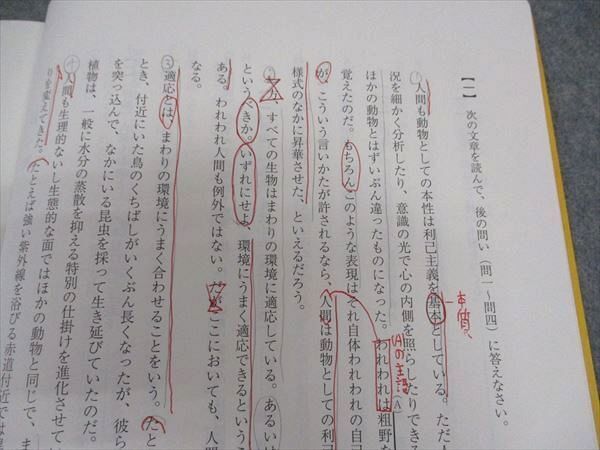 【一】 次の文章を読んで、後の問い（問一～問四）に答えなさい。
① 人間も動物としての本性は利己主義を基本としている。ただ人
況を細かく分析したり、意識の光で心の内側を照らしたりできる
ほかの動物とはずいぶん違ったものになった。われわれは粗野な
覚えたのだ。もちろんこのような表現はそれ自体われわれの自己
が、こういう言いかたが許されるなら、人間は動物としての利己
様式のなかに昇華させた、といえるだろう。
② 一方、すべての生物はまわりの環境に適応している。あるいは
というべきか。いずれにせよ、環境にうまく適応できるというこ
ある。われわれ人間も例外ではない。だがここにおいても、人間
なる。
③ 適応とは、まわりの環境にうまく合わせることをいう。たと
とき、付近にいた鳥のくちばしがいくぶん長くなったが、彼ら
を突っ込んで、なかにいる昆虫を採って生き延びていたのだ。
植物は、一般に水分の蒸散を抑える特別の仕掛けを進化させて
④ 人間も生理的ないし生態的な面ではほかの動物と同じで、ま
りを変えてきた。たとえば強い紫外線を浴びる赤道付近では黒
本質。
(A)の主語
(A)